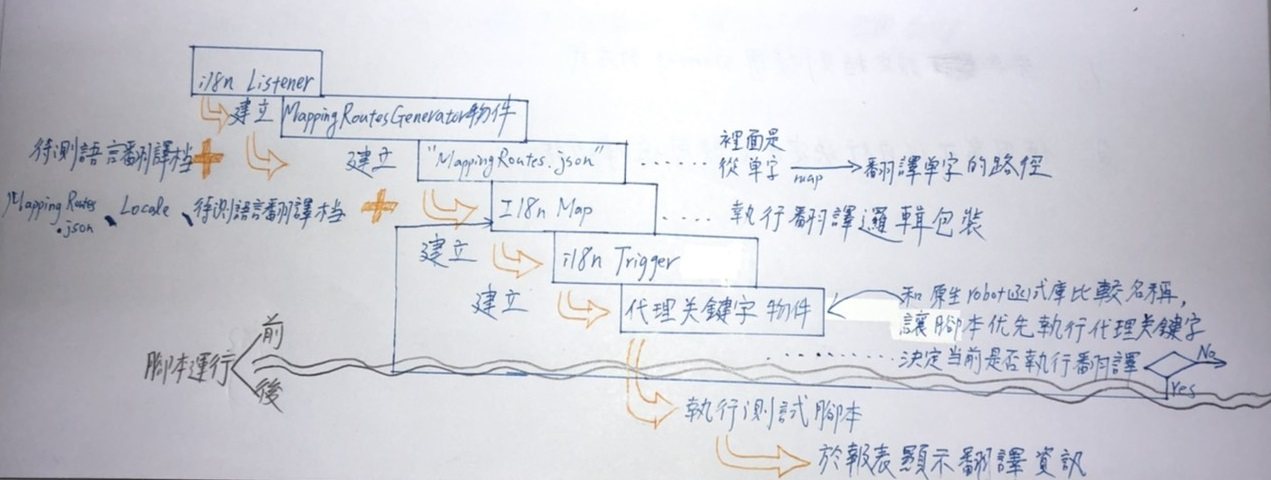 i18n Listener
建立 MappingRoutesGenerator物件
待測語言翻譯档
建立 "MappingRoutes.json"
裡面是
從单字 map 翻譯单字的路径
MappingRoutes.json、Locale、待測語言翻譯档
I18n Map
執行翻譯邏輯包裝
建立 i18n Trigger
建立 代理关鍵字物件
和原生robot函式庫比較名稱,
讓腳本优先執行代理关鍵字
決定当前是否執行翻譯
No
Yes
腳本運行
前
後
執行測試腳本
於報表顯示翻譯資訊